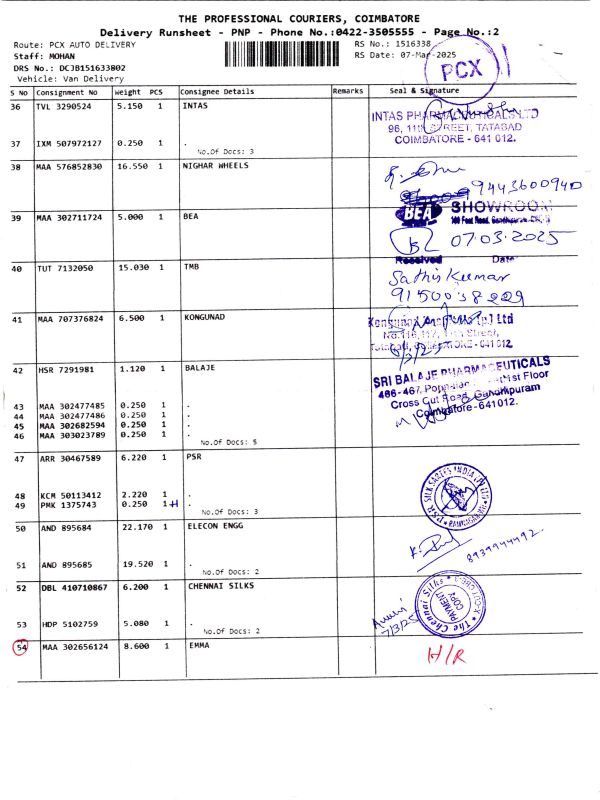 THE PROFESSIONAL COURIERS, COIMBATORE
Delivery Runsheet - PNP - Phone No.:0422-3505555 - Page No.:2
Route: PCX AUTO DELIVERY
RS No.: 1516338
Staff: MOHAN
RS Date: 07-Mar-2025
DRS No.: DCJB151633802
Vehicle: Van Delivery
PCX
S No Consignment No Weight PCS Consignee Details Remarks Seal & Signature
36 TVL 3290524 5.150 1 INTAS
INTAS PHARMACEUTICALS LTD
96, 11th STREET, TATABAD
COIMBATORE - 641 012.
37 IXM 507972127 0.250 1 .
No.Of Docs: 3
38 MAA 576852830 16.550 1 NIGHAR WHEELS
9443600940
39 MAA 302711724 5.000 1 BEA
BEA SHOWROOM
07.03.2025
Received Date
40 TUT 7132050 15.030 1 TMB
Sathis Kumar
9150038229
41 MAA 707376824 6.500 1 KONGUNAD
(p) Ltd
Street,
- 641 012
42 HSR 7291981 1.120 1 BALAJE
SRI BALAJE PHARMACEUTICALS
1st Floor
Cross Cut Road, Gandhipuram
Coimbatore - 641012.
43 MAA 302477485 0.250 1 .
44 MAA 302477486 0.250 1 .
45 MAA 302682594 0.250 1 .
46 MAA 303023789 0.250 1 .
No.Of Docs: 5
47 ARR 30467589 6.220 1 PSR
PSR SILK SAREES INDIA (P) LTD
48 KCM 50113412 2.220 1 .
49 PMK 1375743 0.250 1 .
No.Of Docs: 3
50 AND 895684 22.170 1 ELECON ENGG
8939944992.
51 AND 895685 19.520 1 .
No.Of Docs: 2
52 DBL 410710867 6.200 1 CHENNAI SILKS
The Chennai Silks
PAYMENT
COPY
7/3/25
53 HDP 5102759 5.080 1 .
No.Of Docs: 2
54 MAA 302656124 8.600 1 EMMA
H/R